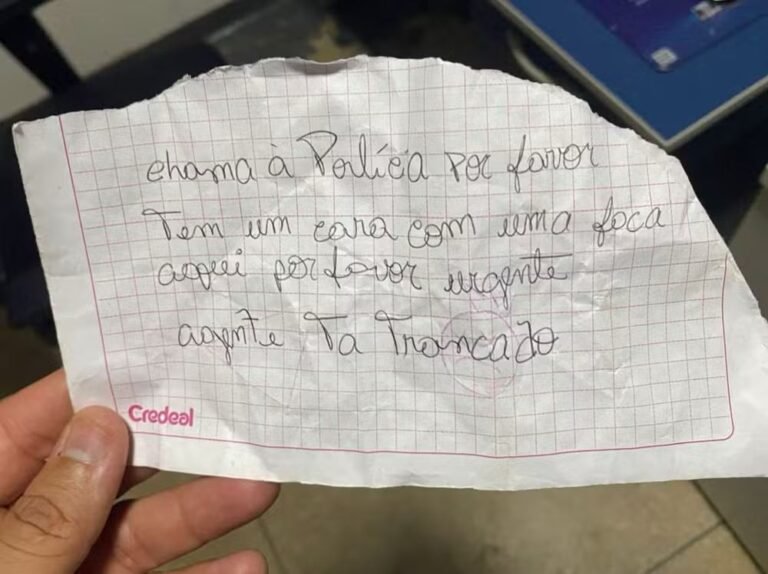 chama à Polícia por favor
Tem um cara com uma foca
aqui por favor urgente
agente Ta Trancado
Credeal